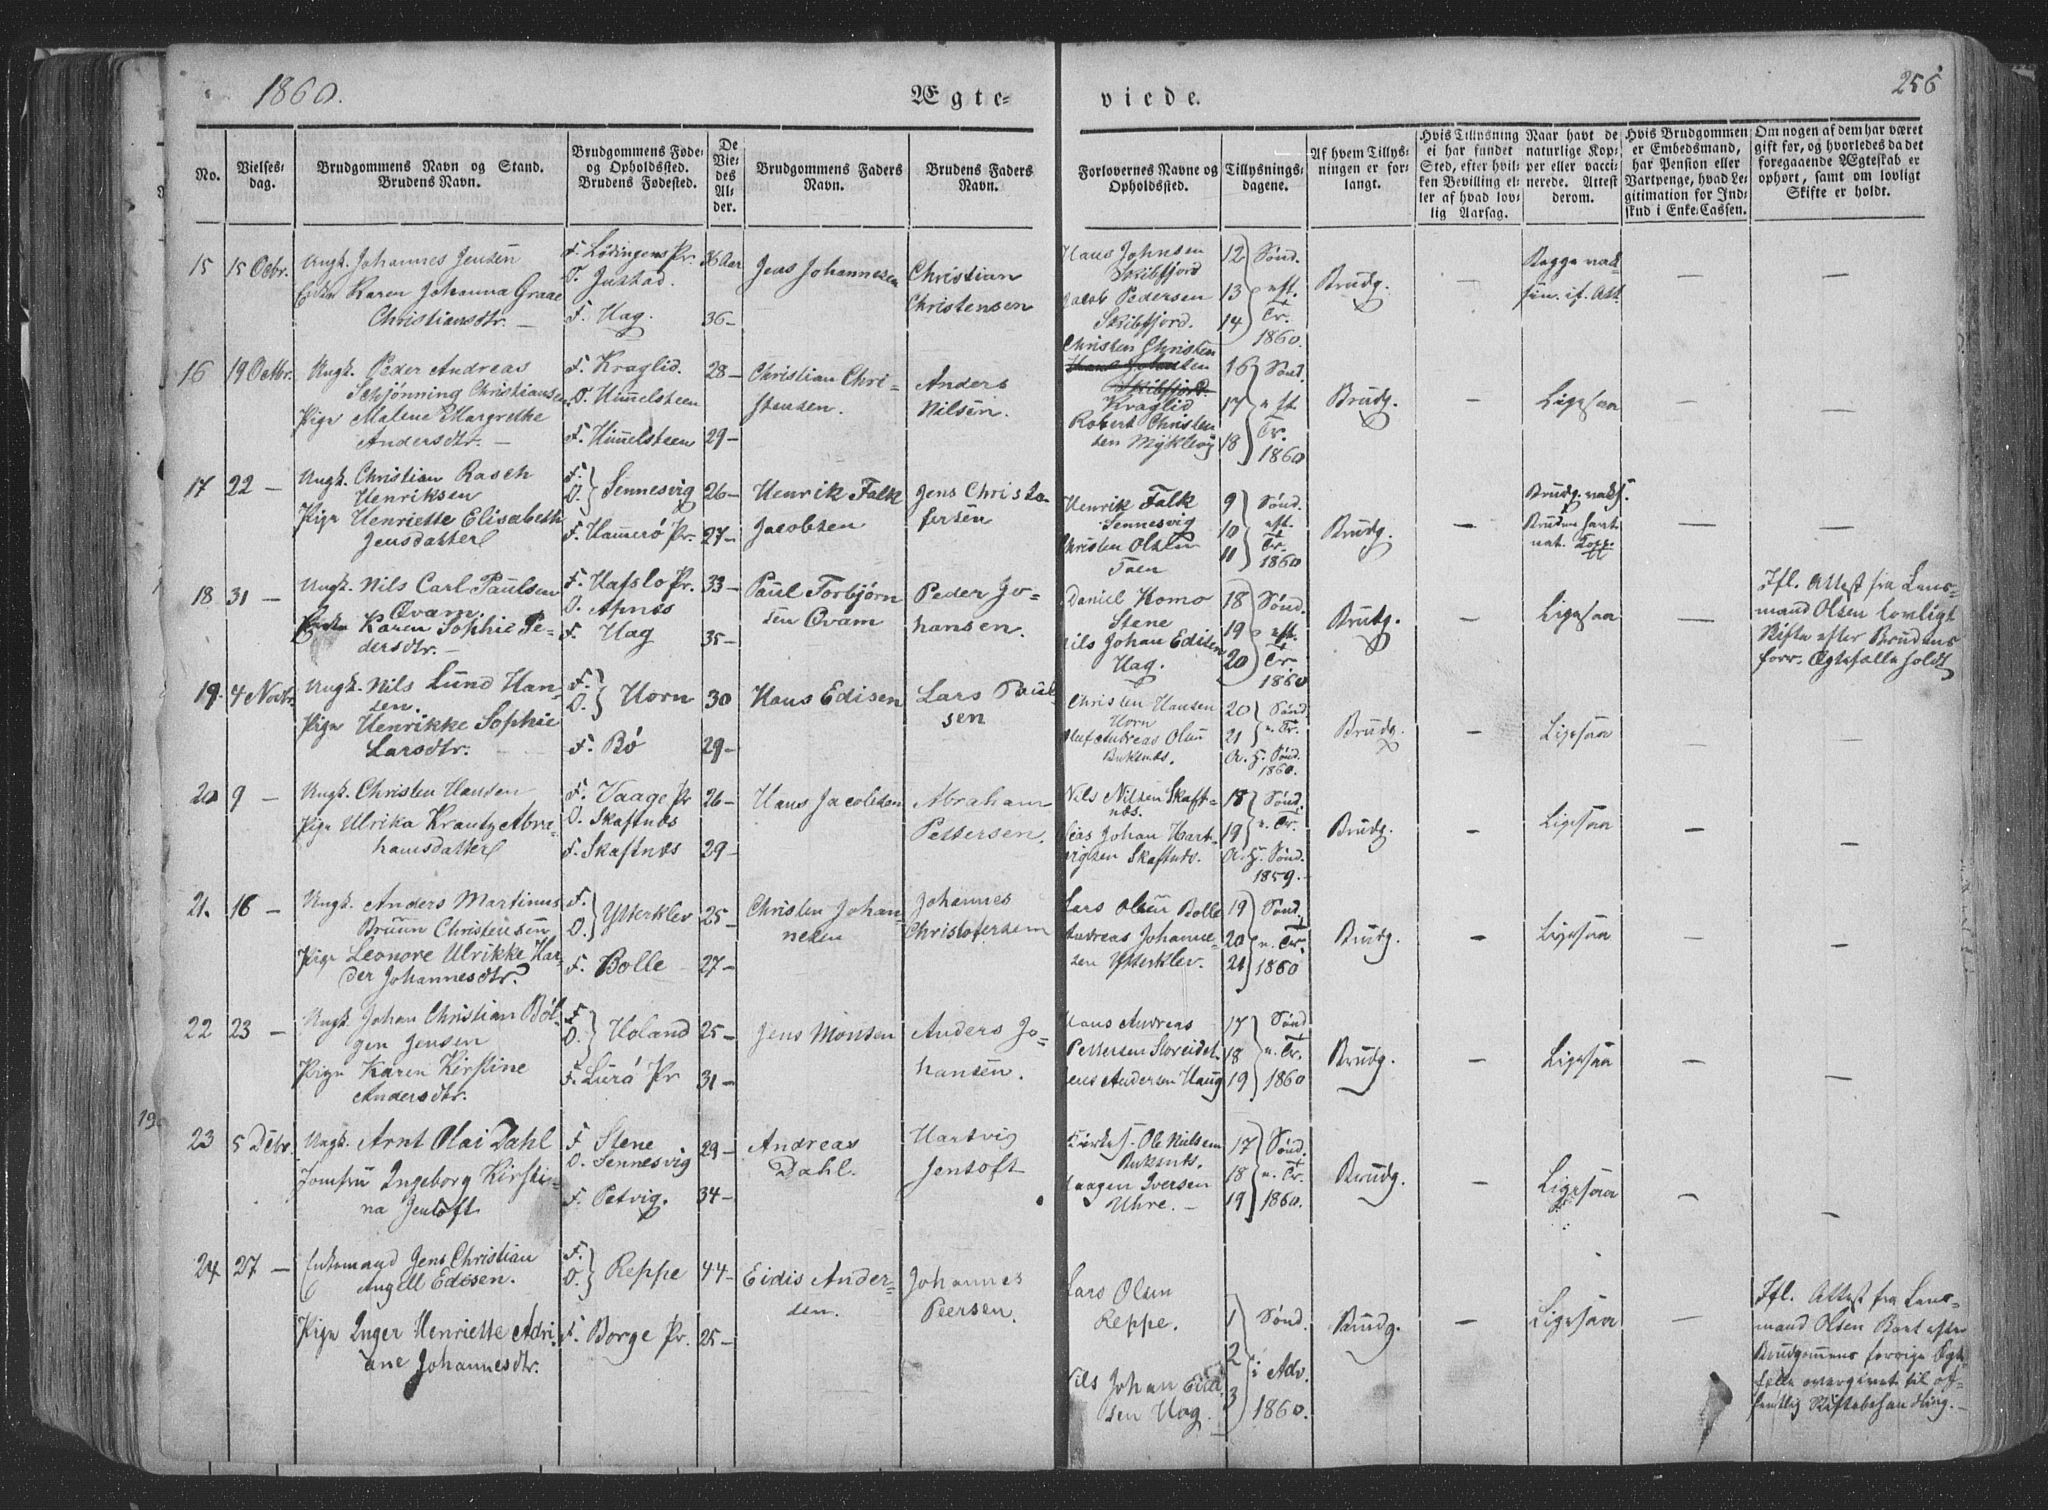 1860.
Ægte-
viede.
256
No.
Vielses-
dag.
Brudgommens Navn og Stand.
Brudens Navn.
Brudgommens Føde-
og Opholdssted.
Brudens Fødested.
De
Vie-
des
Al-
der.
Brudgommens Faders
Navn.
Brudens Faders
Navn.
Forlovernes Navne og
Opholdssted.
Tillysnings-
dagene.
Af hvem Tillys-
ningen er for-
langt.
Hvis Tillysning
ei har fundet
Sted, efter hvil-
ken Bevilling el-
ler af hvad lov-
lig Aarsag.
Naar havt de
naturlige Kop-
per eller vacci-
nerede. Attest
derom.
Hvis Brudgommen
er Embedsmand,
har Pension eller
Vartpenge, hvad Le-
gitimation for Ind-
skud i Enke-Cassen.
Om nogen af dem har været
gift før, og hvorledes da det
foregaaende Ægteskab er
ophørt, samt om lovligt
Skifte er holdt.
15
15 Octbr.
Ungk. Johannes Jensen
Karen Johanna Graae
Christiansdtr. —
F. Lødingens Pr.
O. Justad.
F. Hag.
36 Aar
36 —
Jens Johannesen
Christian
Christensen
Hans Johnsen
Skibfjord
Jacob Pedersen
Skibfjord.
12
13
14
Sønd.
e. ft.
Tr.
1860.
Brudg.
—
Begge vak-
sin. if. Att.
—
—
16
19 Octbr.
Ungk. Peder Andreas
Schjønning Christiansen
Pige Malene Margrethe
Andersdtr. —
F. Kraglid.
O. Himelsteen
F. Himelsteen
28 —
29 —
Christian Chri-
stensen.
Anders
Nilsen.
Christen Christen
sen
Skibfjord
Kraglid
Robert Christen
sen Myklevig
16
17
18
Sønd.
e. ft.
Tr.
1860
Brudg.
—
Ligesaa
—
—
17
22 —
Ungk. Christian Rasch
Henriksen
Pige Henriette Elisabeth
Jensdatter
F.
O.
Sennesvig
F. Hamerø Pr.
26 —
27 —
Henrik Falk
Jacobsen
Jens Christo
fersen
Henrik Falk
Sennesvig
Christen Olsen
Toen
9
10
11
Sønd.
e. ft.
Tr.
1860
Brudg.
—
Brudg. vaks.
Bruden havt
nat. Kopp.
—
—
18
31 —
Ungk. Nils Carl Paulsen
Qvam.
Enke Karen Sophie Pe-
dersdtr. —
F. Hafslo Pr.
O. Apnes
F. Hag
33 —
35 —
Paul Torbjørn
sen Qvam
Peder Jo-
hansen.
Daniel Homo
Stene
Nils Johan Edisen
Hag.
18
19
20
Sønd.
e. ft.
Tr.
1860
Brudg.
—
Ligesaa
—
Ifl. Attest fra Lens-
mand Olsen lovligt
Skifte efter Brudens
forr. Ægtefælle holdt
19.
4 Novbr.
Ungk. Nils Lund Han-
sen.
Pige Henrikke Sophie
Larsdtr.
F.
O.
Horn
F. Bø
30
29 —
Hans Edisen
Lars Paul-
sen
Christen Hansen
Horn
Oluf Andreas Olsen
Buksnes.
20
21
Sønd.
e. Tr.
A. H. Sønd.
1860.
Brudg.
—
Ligesaa
—
—
20
9 —
Ungk. Christen Hansen
Pige Ulrika Krantz Abra-
hamsdatter
F. Vaage Pr
O. Skaftnæs
F. Skaftnæs
26 —
29 —
Hans Jacobsen
Abraham
Pettersen.
Nils Nilsen Skaft-
næs.
Johan Hart-
vigsen Skaftnæs.
18
19
Sønd.
e. Tr.
A. H. Sønd.
1859.
Brudg.
—
Ligesaa
—
—
21.
16 —
Ungk. Anders Martinus
Bruun Christensen
Pige Leonore Ulrikke Har-
der Johannesdtr.
F.
O.
Ytterklev
F. Bolle
25 —
27 —
Christen Johan-
nesen
Johannes
Christofersen
Lars Olsen Bolle
Andreas Johanne-
sen Ytterklev.
19
20
21
Sønd.
e. Tr.
1860
Brudg.
—
Ligesaa
—
—
22
23 —
Ungk. Johan Christian Bøl-
gen Jensen
Pige Karen Kirstine
Andersdtr.
F.
O.
Holand
F. Lurø Pr
25 —
31 —
Jens Monsen
Anders Jo-
hansen.
Hans Andreas
Pettersen Storeidet.
Jens Andersen Haug
17
18
19
Sønd
e. Tr.
1860
Brudg.
—
Ligesaa
—
—
23
5 Debr.
Ungk. Arnt Olai Dahl
Jomfru Ingeborg Kirsti-
na Jentoft
F. Stene
O. Sennesvig
F. Petvig.
29 —
34 —
Andreas
Dahl.
Hartvig
Jentoft
Kirkes. Ole Nilsen
Buksnes.
Haagen Iversen
Uhre. —
17
18
19
Sønd.
e. Tr.
1860.
Brudg.
—
Ligesaa
—
—
24
27 —
Enkemand Jens Christian
Angell Edisen.
Pige Inger Henriette Adri-
ane Johannesdtr.
F.
O.
Reppe
F. Borge Pr.
44 —
25 —
Eidis Ander-
sen.
Johannes
Peersen.
Lars Olsen
Reppe.
Nils Johan Edi
sen Hag.
1
2
3
Sønd.
i Adv.
1860.
Brudg.
—
Ligesaa
—
Ifl. Attest fra Lens-
mand Olsen Boet efter
Brudgomens forrige Ægte-
fælle overgivet til of-
fentlig Skiftebehandling. —